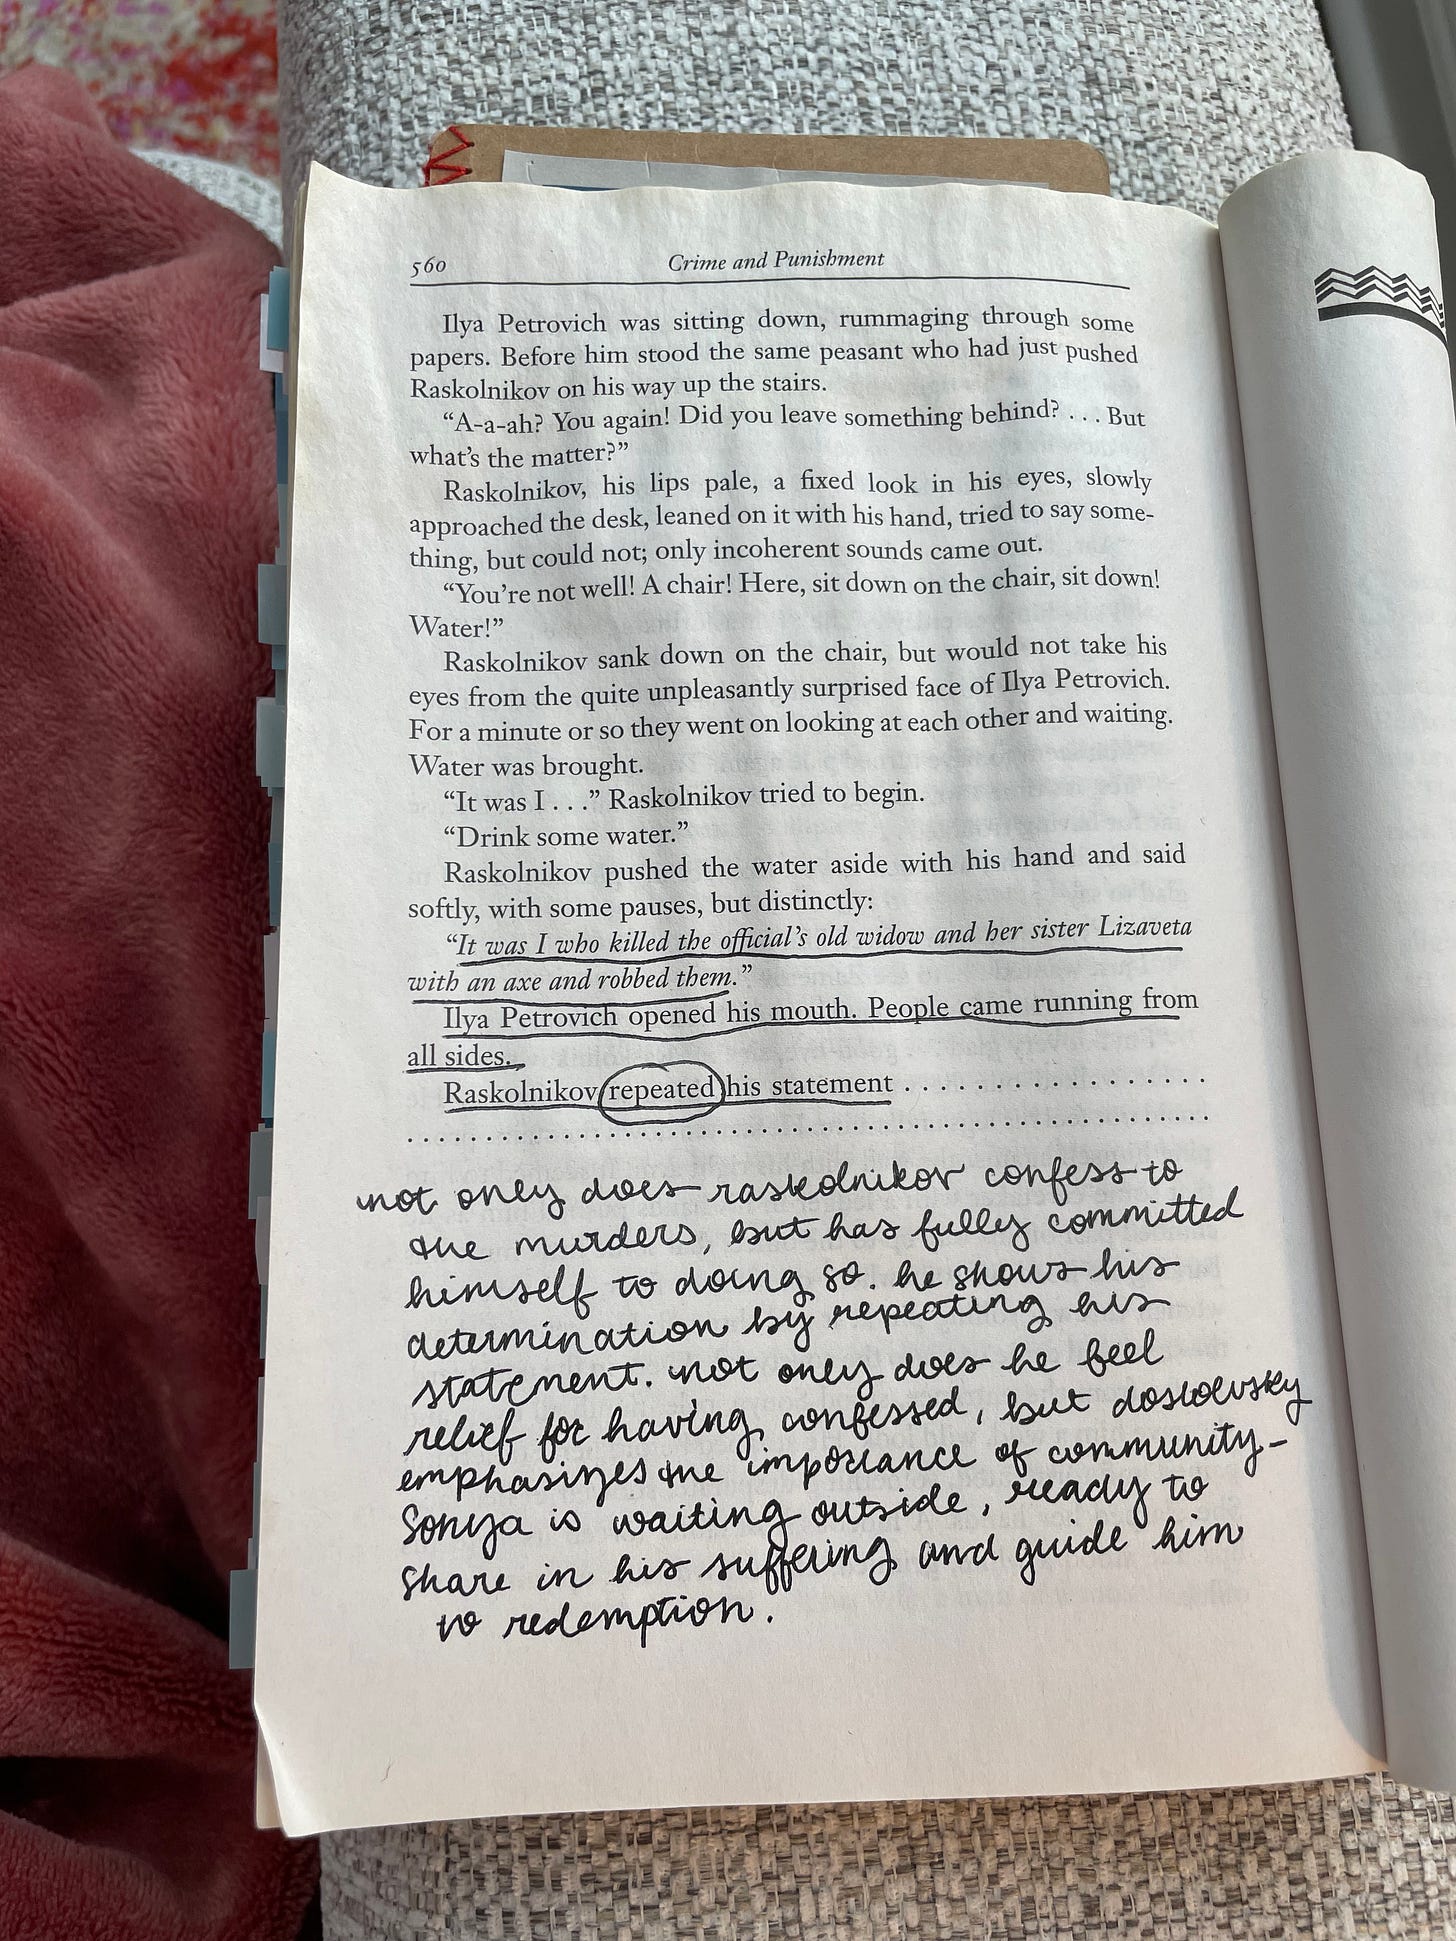 560
Crime and Punishment
Ilya Petrovich was sitting down, rummaging through some
papers. Before him stood the same peasant who had just pushed
Raskolnikov on his way up the stairs.
“A-a-ah? You again! Did you leave something behind? . . . But
what’s the matter?”
Raskolnikov, his lips pale, a fixed look in his eyes, slowly
approached the desk, leaned on it with his hand, tried to say some-
thing, but could not; only incoherent sounds came out.
“You’re not well! A chair! Here, sit down on the chair, sit down!
Water!”
Raskolnikov sank down on the chair, but would not take his
eyes from the quite unpleasantly surprised face of Ilya Petrovich.
For a minute or so they went on looking at each other and waiting.
Water was brought.
“It was I . . .” Raskolnikov tried to begin.
“Drink some water.”
Raskolnikov pushed the water aside with his hand and said
softly, with some pauses, but distinctly:
“It was I who killed the official’s old widow and her sister Lizaveta
with an axe and robbed them.”
Ilya Petrovich opened his mouth. People came running from
all sides.
Raskolnikov repeated his statement . . . . . . . . . . . . . . . .
. . . . . . . . . . . . . . . . . . . . . . . . . . . . . . . . . . . . . . . . . .
not only does raskolnikov confess to
the murders, but has fully committed
himself to doing so. he shows his
determination by repeating his
statement. not only does he feel
relief for having confessed, but dostoevsky
emphasizes the importance of community-
Sonya is waiting outside, ready to
share in his suffering and guide him
to redemption.